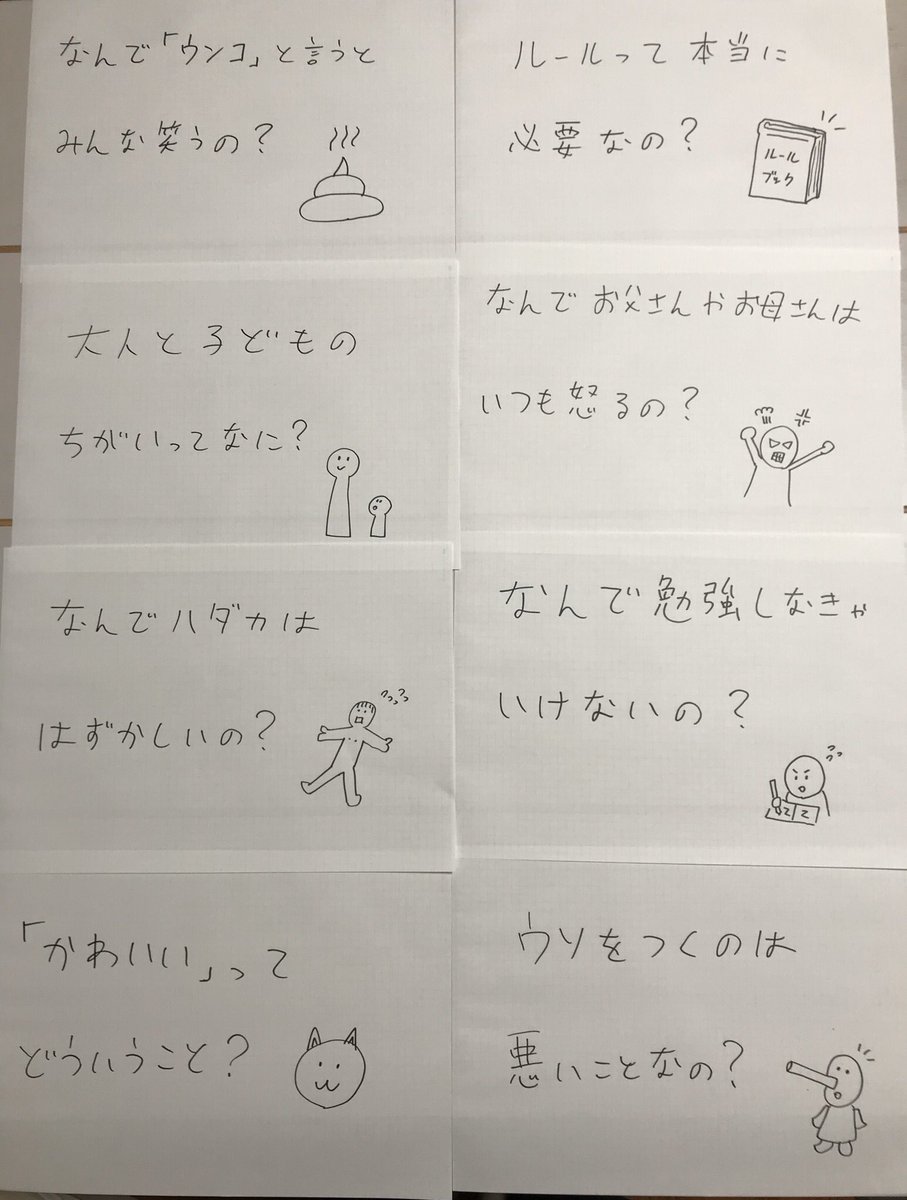 なんで「ウンコ」と言うと
みんな笑うの？
ルールって本当に
必要なの？
ルール
ブック
大人と子どもの
ちがいってなに？
なんでお父さんやお母さんは
いつも怒るの？
なんでハダカは
はずかしいの？
なんで勉強しなきゃ
いけないの？
「かわいい」って
どういうこと？
ウソをつくのは
悪いことなの？